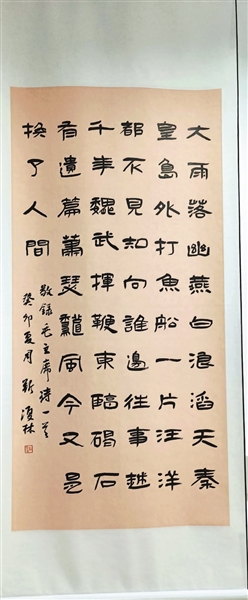 大雨落幽燕白浪滔天秦
皇島外打魚船一片汪洋
都不見知向誰邊往事越
千年魏武揮鞭東臨碣石
有遺篇蕭瑟龝風今又是
換了人間
敬錄毛主席詩一首
癸卯夏月 靳林